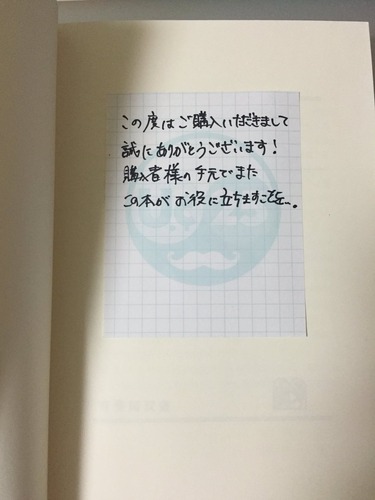 この度はご購入いただきまして
誠にありがとうございます!
購入者様の手元でまた
この本がお役に立ちますことを…。